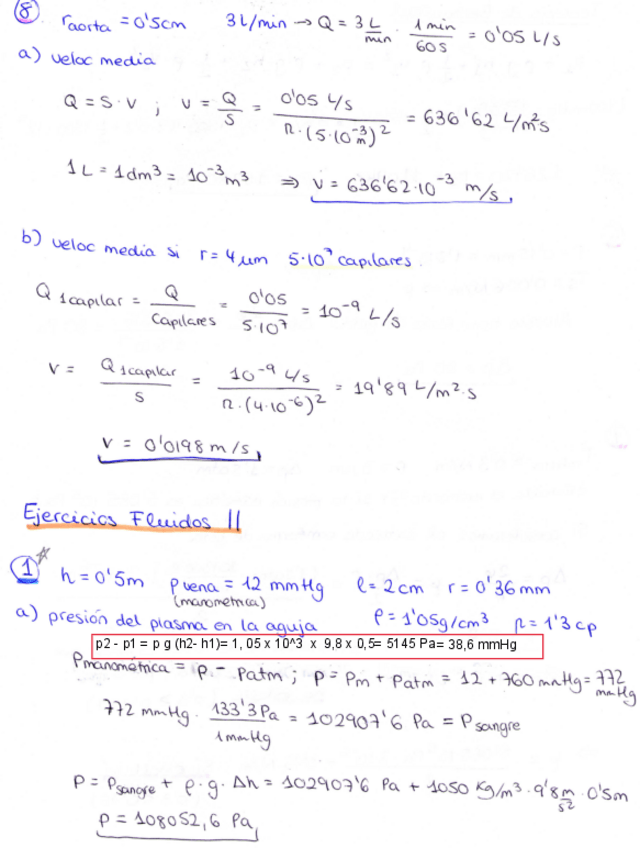 ⑧ r aorta = 0'5cm 3L/min → Q = 3 L/min · 1 min/60 s = 0'05 L/s
a) veloc media
Q = S·v ; v = Q/S = 0'05 L/s / π·(5·10⁻³m)² = 636'62 L/m²s
1L = 1dm³ = 10⁻³m³ ⇒ v = 636'62·10⁻³ m/s.
b) veloc media si r = 4 μm 5·10⁷ capilares.
Q 1capilar = Q/Capilares = 0'05/5·10⁷ = 10⁻⁹ L/s
v = Q 1capilar/S = 10⁻⁹ L/s / π·(4·10⁻⁶)² = 19'89 L/m²·s
v = 0'0198 m/s.
Ejercicios Fluidos II
① * h = 0'5m Pvena = 12 mmHg l = 2cm r = 0'36 mm
(manométrica)
a) presión del plasma en la aguja ρ = 1'05g/cm³ η = 1'3 cp
p2 - p1 = p g (h2- h1)= 1, 05 x 10^3 x 9,8 x 0,5= 5145 Pa= 38,6 mmHg
Pmanométrica = P - Patm ; P = Pm + Patm = 12 + 760 mmHg = 772 mmHg
772 mmHg · 133'3 Pa/1mmHg = 102907'6 Pa = Psangre
P = Psangre + ρ·g·Δh = 102907'6 Pa + 1050 Kg/m³·9'8 m/s²·0'5m
P = 108052,6 Pa